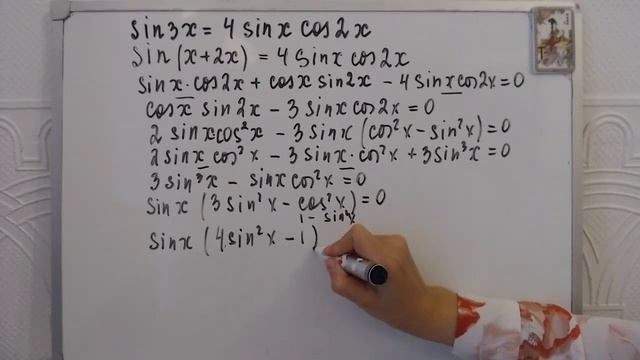 sin3x = 4 sinx cos2x
sin(x+2x) = 4 sinx cos2x
sinx·cos2x + cosx sin2x - 4 sinx cos2x = 0
cosx sin2x - 3 sinx cos2x = 0
2 sinx cos²x - 3 sinx (cos²x - sin²x) = 0
2 sinx cos²x - 3 sinx·cos²x + 3 sin³x = 0
3 sin³x - sinx cos²x = 0
sinx (3 sin²x - cos²x) = 0
1 - sin²x
sinx (4 sin²x - 1)